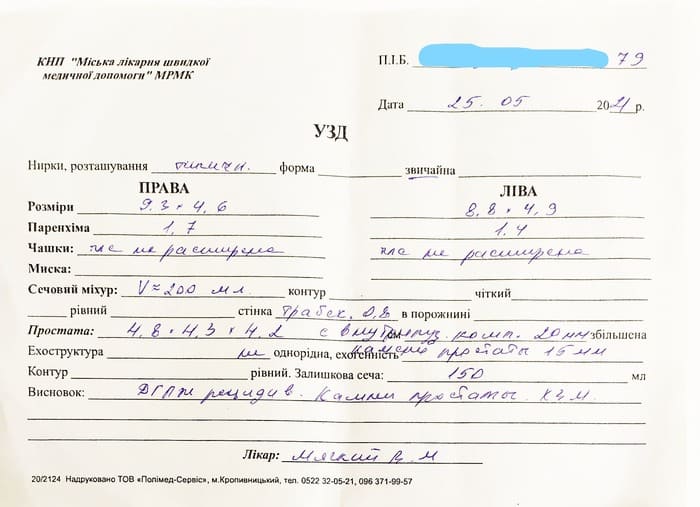 КНП "Міська лікарня швидкої
медичної допомоги" МРМК
П.І.Б. 79
Дата 25. 05 2021 р.
УЗД
Нирки, розташування типичн. форма звичайна
ПРАВА ЛІВА
Розміри 9.3 × 4,6 8,8 × 4,9
Паренхіма 1,7 1.4
Чашки: члс не расширена члс не расширена
Миска:
Сечовий міхур: V≈200 мл. контур чіткий
рівний стінка трабек. 0,8 в порожнині
Простата: 4,8 × 4,3 × 4.2 с внутрипуз. комп. 20 мм збільшена
Ехоструктура не однорідна, ехогенність камень простаты 15 мм
Контур рівний. Залишкова сеча: 150 мл
Висновок: ДГПЖ рецидив. Камни простаты. ХЗМ.
Лікар: Мягкий В. М
20/2124 Надруковано ТОВ «Полімед-Сервіс», м.Кропивницький, тел. 0522 32-05-21, 096 371-99-57